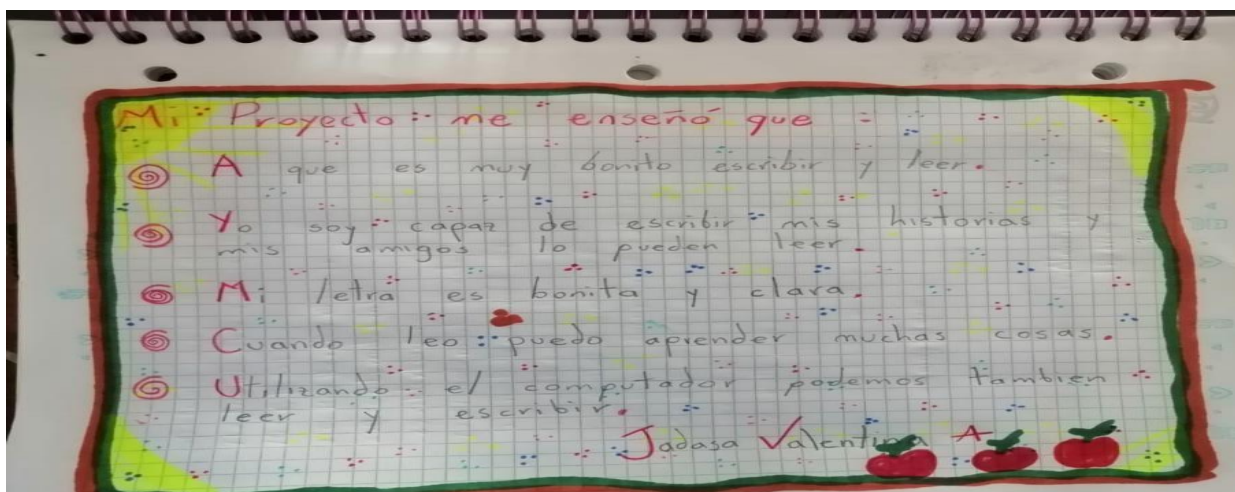 Mi Proyecto me enseñó que
A que es muy bonito escribir y leer.
Yo soy capaz de escribir mis historias y
mis amigos lo pueden leer.
Mi letra es bonita y clara.
Cuando leo puedo aprender muchas cosas.
Utilizando el computador podemos tambien
leer y escribir.
Jadasa Valentina A